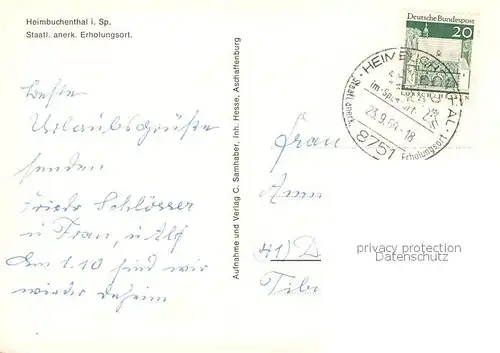 Heimbuchenthal i. Sp.
Staatl. anerk. Erholungsort.
Beste
Urlaubsgrüße
senden
Friedr Schlösser
u Frau, u Alf
Am 1.10 sind wir
wieder daheim
Aufnahme und Verlag C. Samhaber, Inh. Hesse, Aschaffenburg
Deutsche Bundespost
20
LORSCH
HEIMBUCHENTHAL
im Spessart
23.9.69-18
8751
Staatl. anerk. Erholungsort
Frau
41) D
privacy protection
Datenschutz